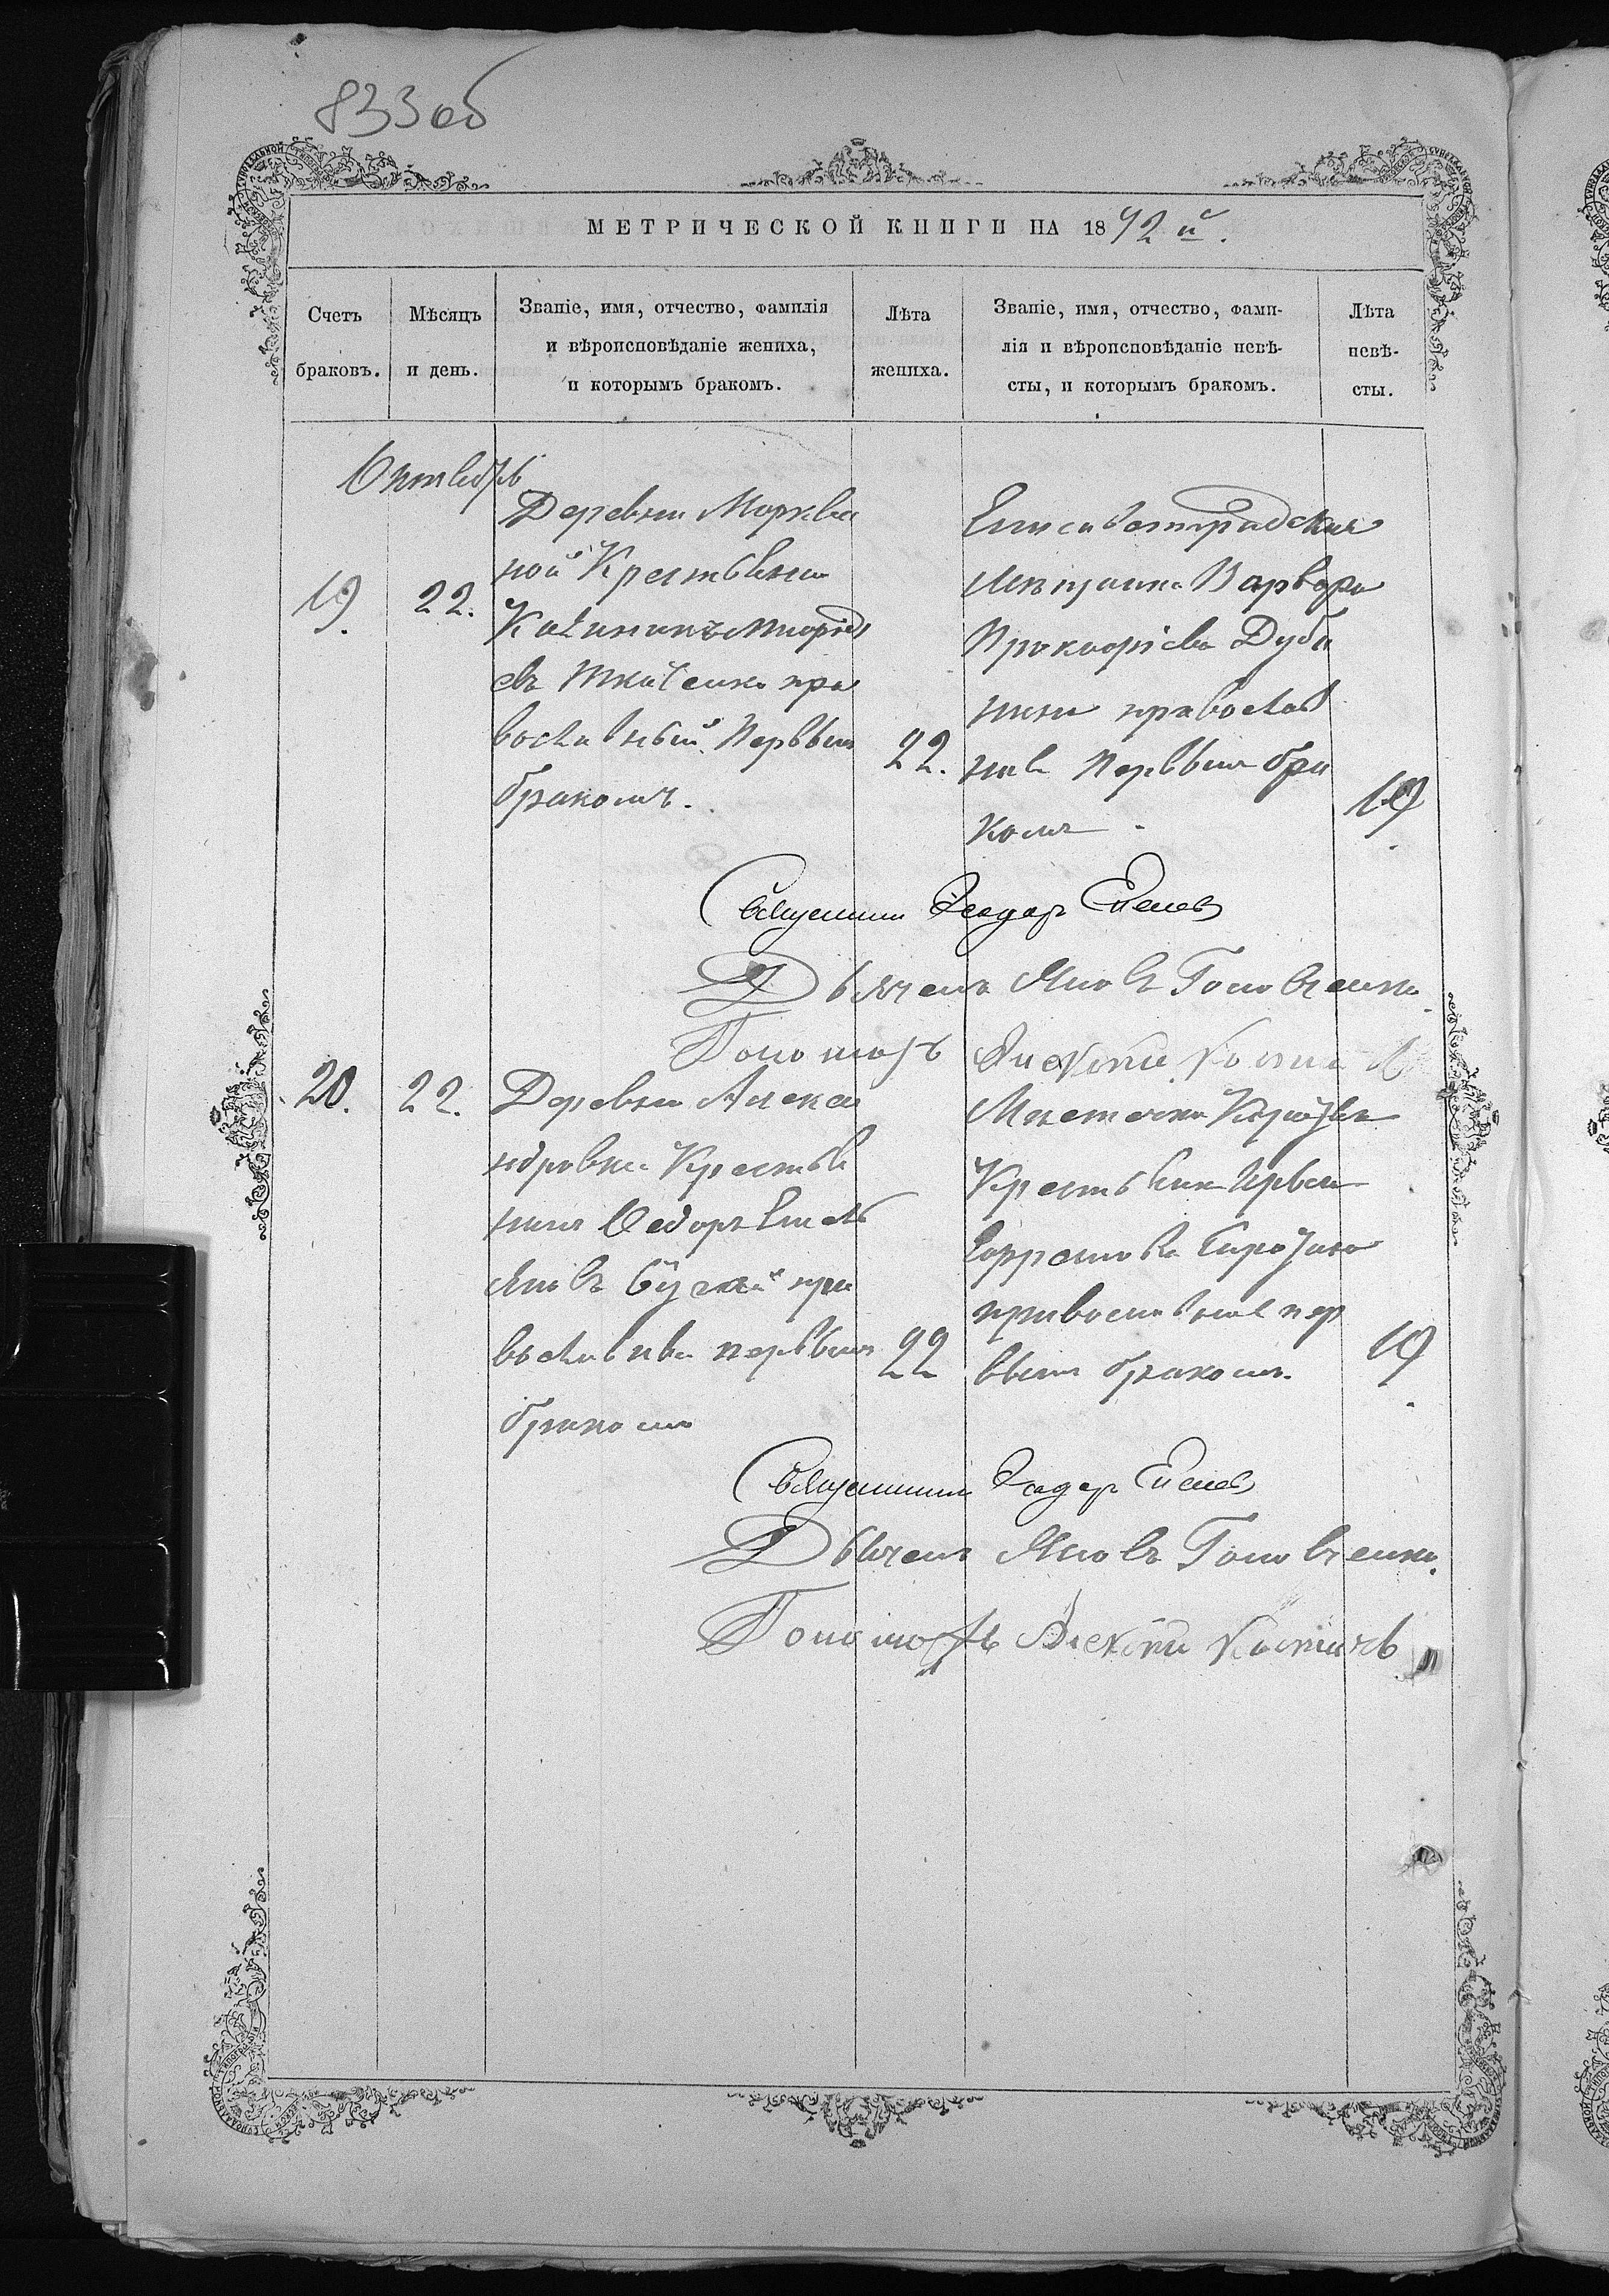 833 об
МЕТРИЧЕСКОЙ КНИГИ НА 1892 й.
Счетъ браковъ.
Мѣсяцъ и день.
Званіе, имя, отчество, фамилія
и вѣроисповѣданіе жениха,
и которымъ бракомъ.
Лѣта жениха.
Званіе, имя, отчество, фами-
лія и вѣроисповѣданіе невѣ-
сты, и которымъ бракомъ.
Лѣта невѣ-
сты.
Октябрь
19. 22.
Деревни Маркви
ной Крестьянин
евъ Ткаченко пра
вославный Первым
бракомъ.
22.
Елисаветградская
мѣщанка Варвара
Прокофіева Дуби
нина православ
ная Первым бра
комъ.
19
Священникъ Ѳеодор
Дьячекъ Яковъ Головченко.
Пономарь Алексѣй
20. 22.
Деревни Алекса
ндровки Крестья
нинъ Ѳедоръ Емель
яновъ пра
вославный первымъ
бракомъ
22
Мѣстечка
Крестьянка
православная пер
вымъ бракомъ.
19
Священникъ Ѳеодор
Дьячекъ Яковъ Головченко.
Пономарь Алексѣй